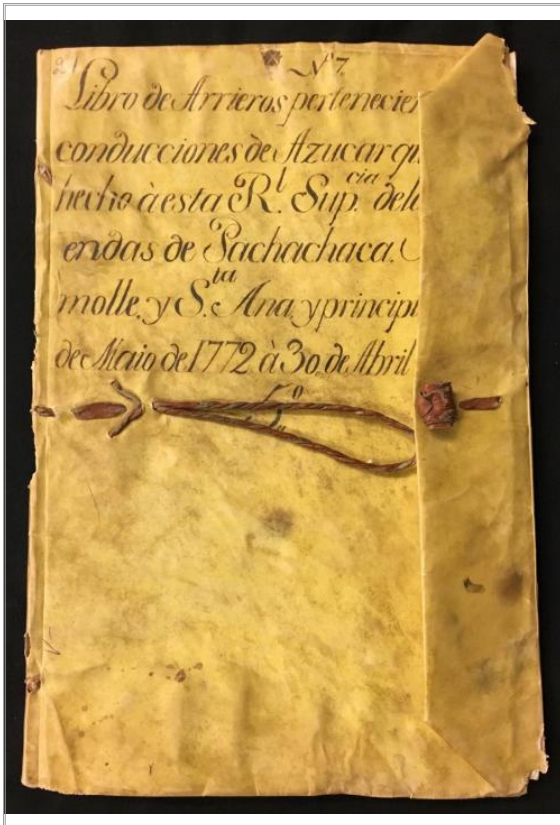 21
Nº 7.
Libro de Arrieros pertenecien
conducciones de Azucar qu
hecho à esta R.l Sup.cia de la
endas de Pachachaca.
molle, y S.ta Ana, y principi
de Maio de 1772 à 30, de Abril
5.º